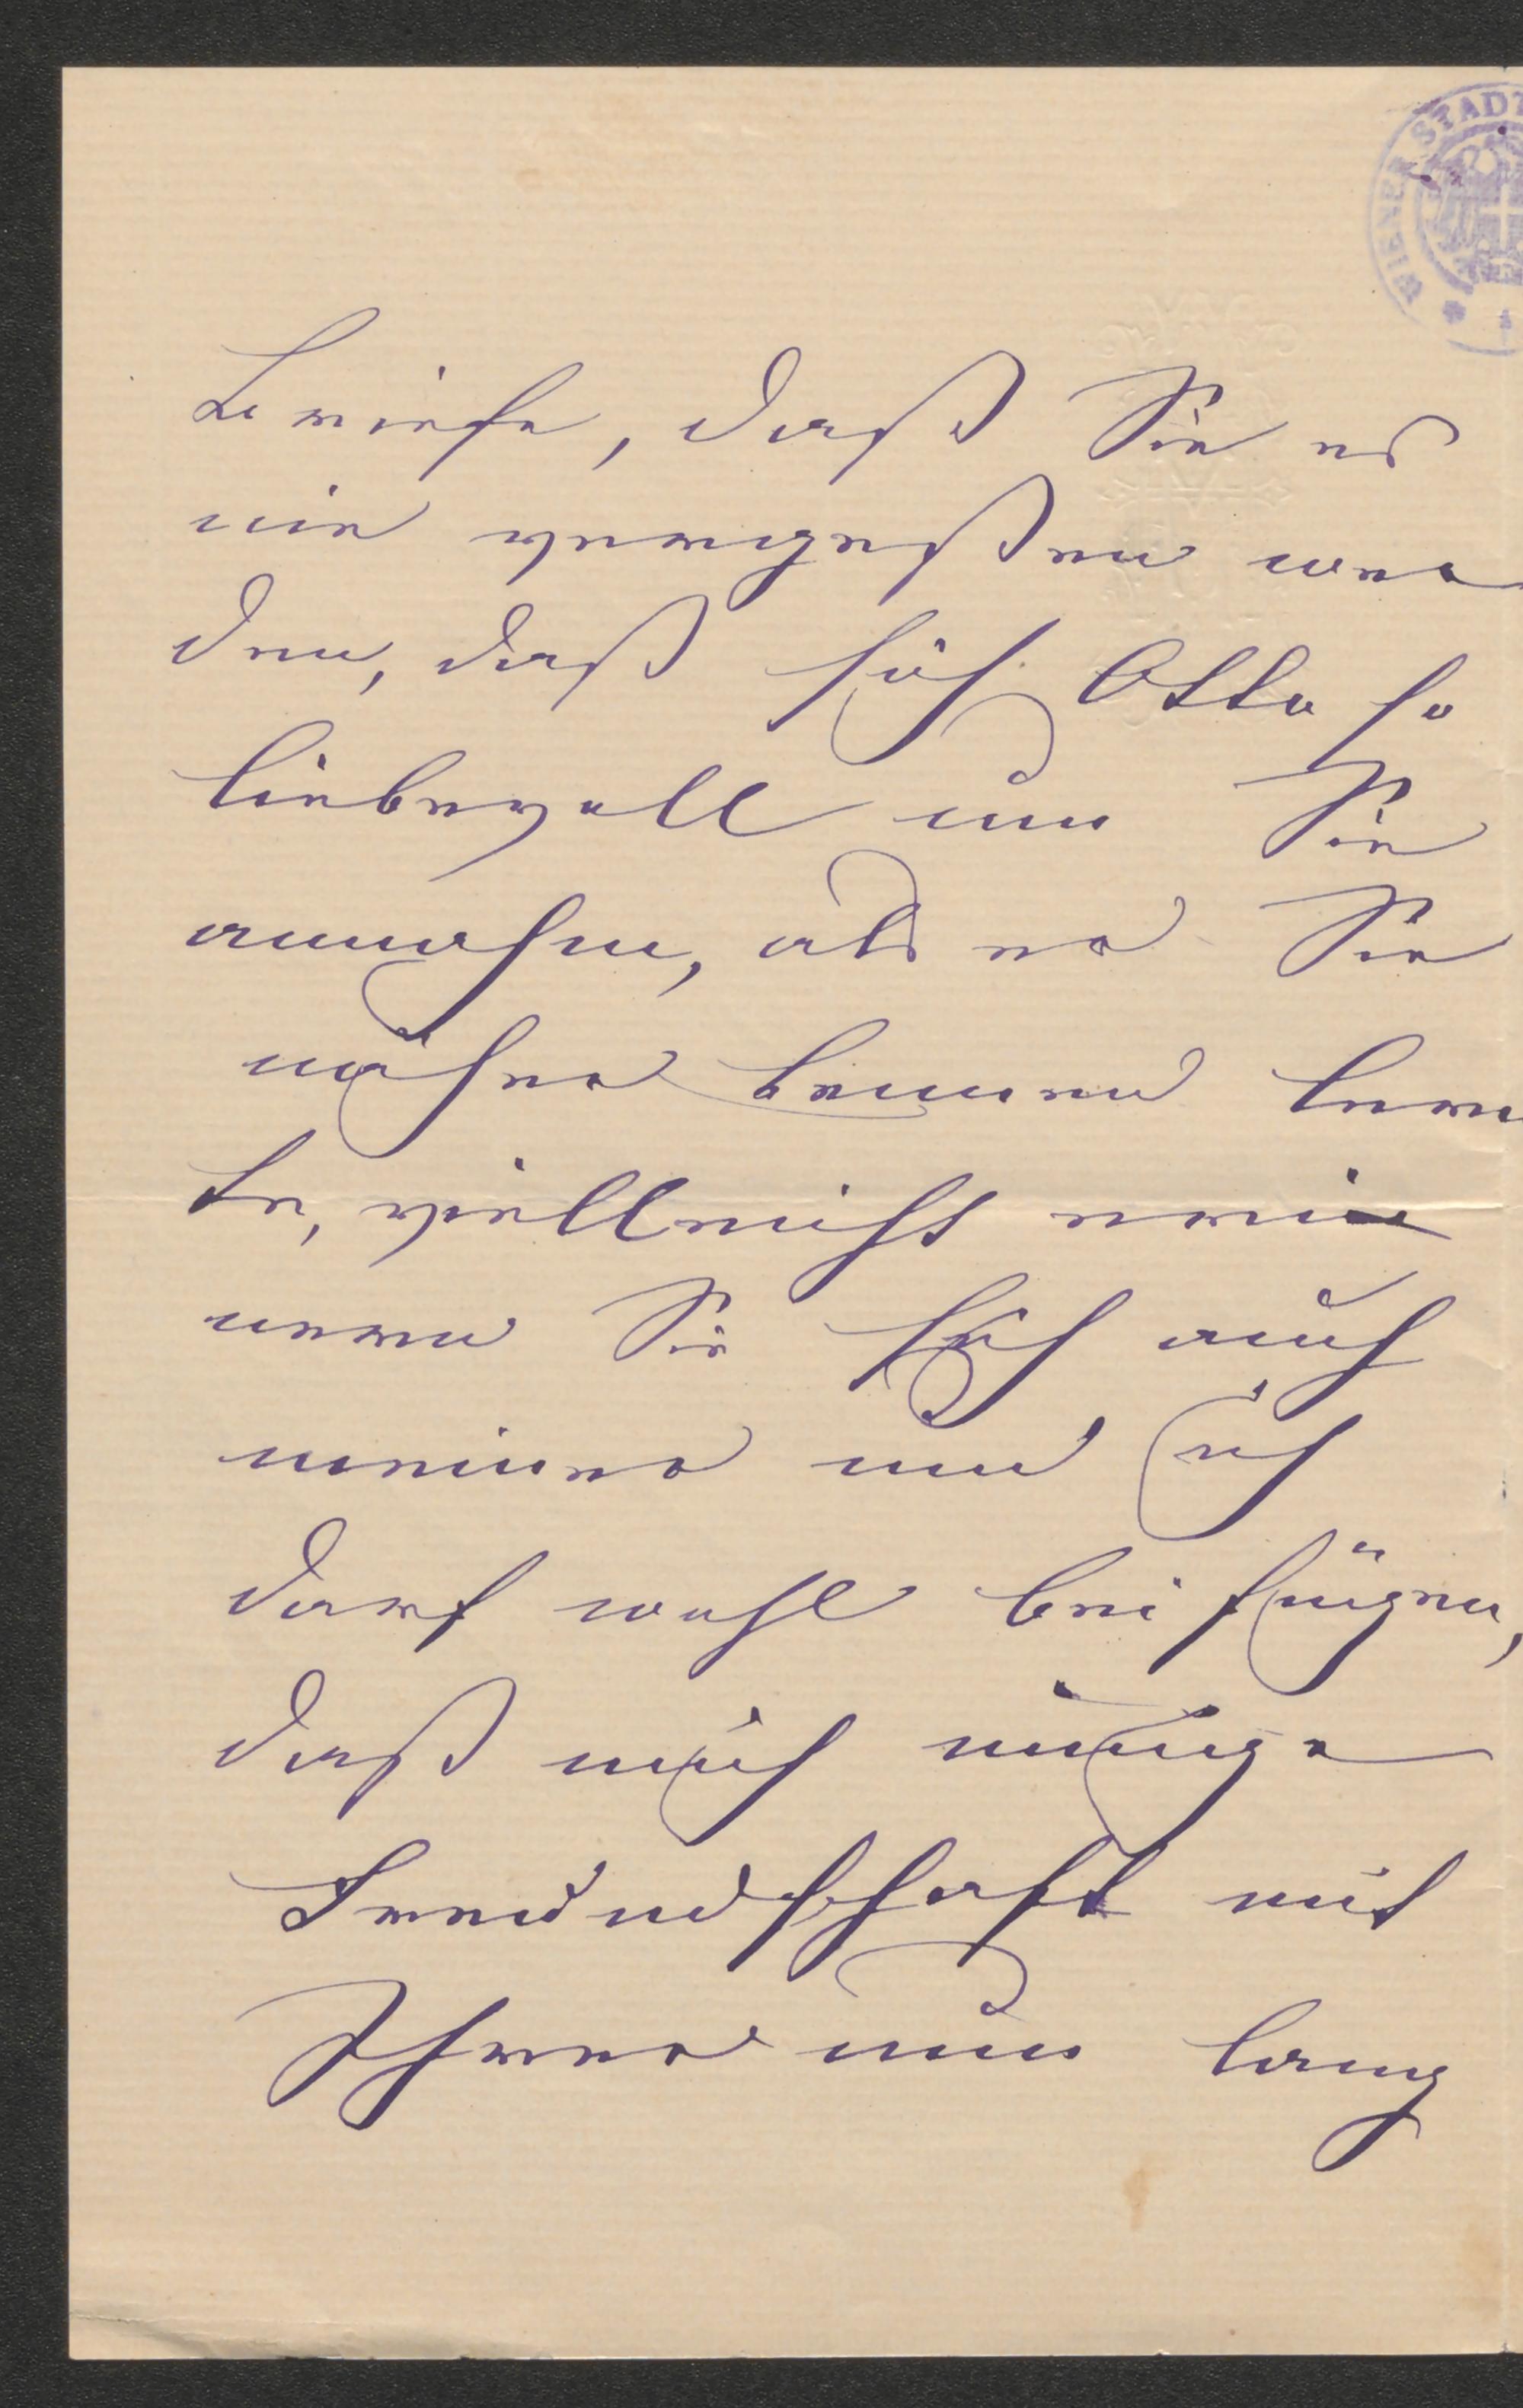 WIENER STADT
Briefe, daß Sie es
nie vergeßen wer
den, daß sich Otto so
liebevoll um Sie
annahm, als er Sie
näher kennen lern
te, vielleicht erin
nern Sie sich auch
meiner und ich
darf wohl beifügen,
daß mich innige
Freundschaft mit
Ihrer nun lang